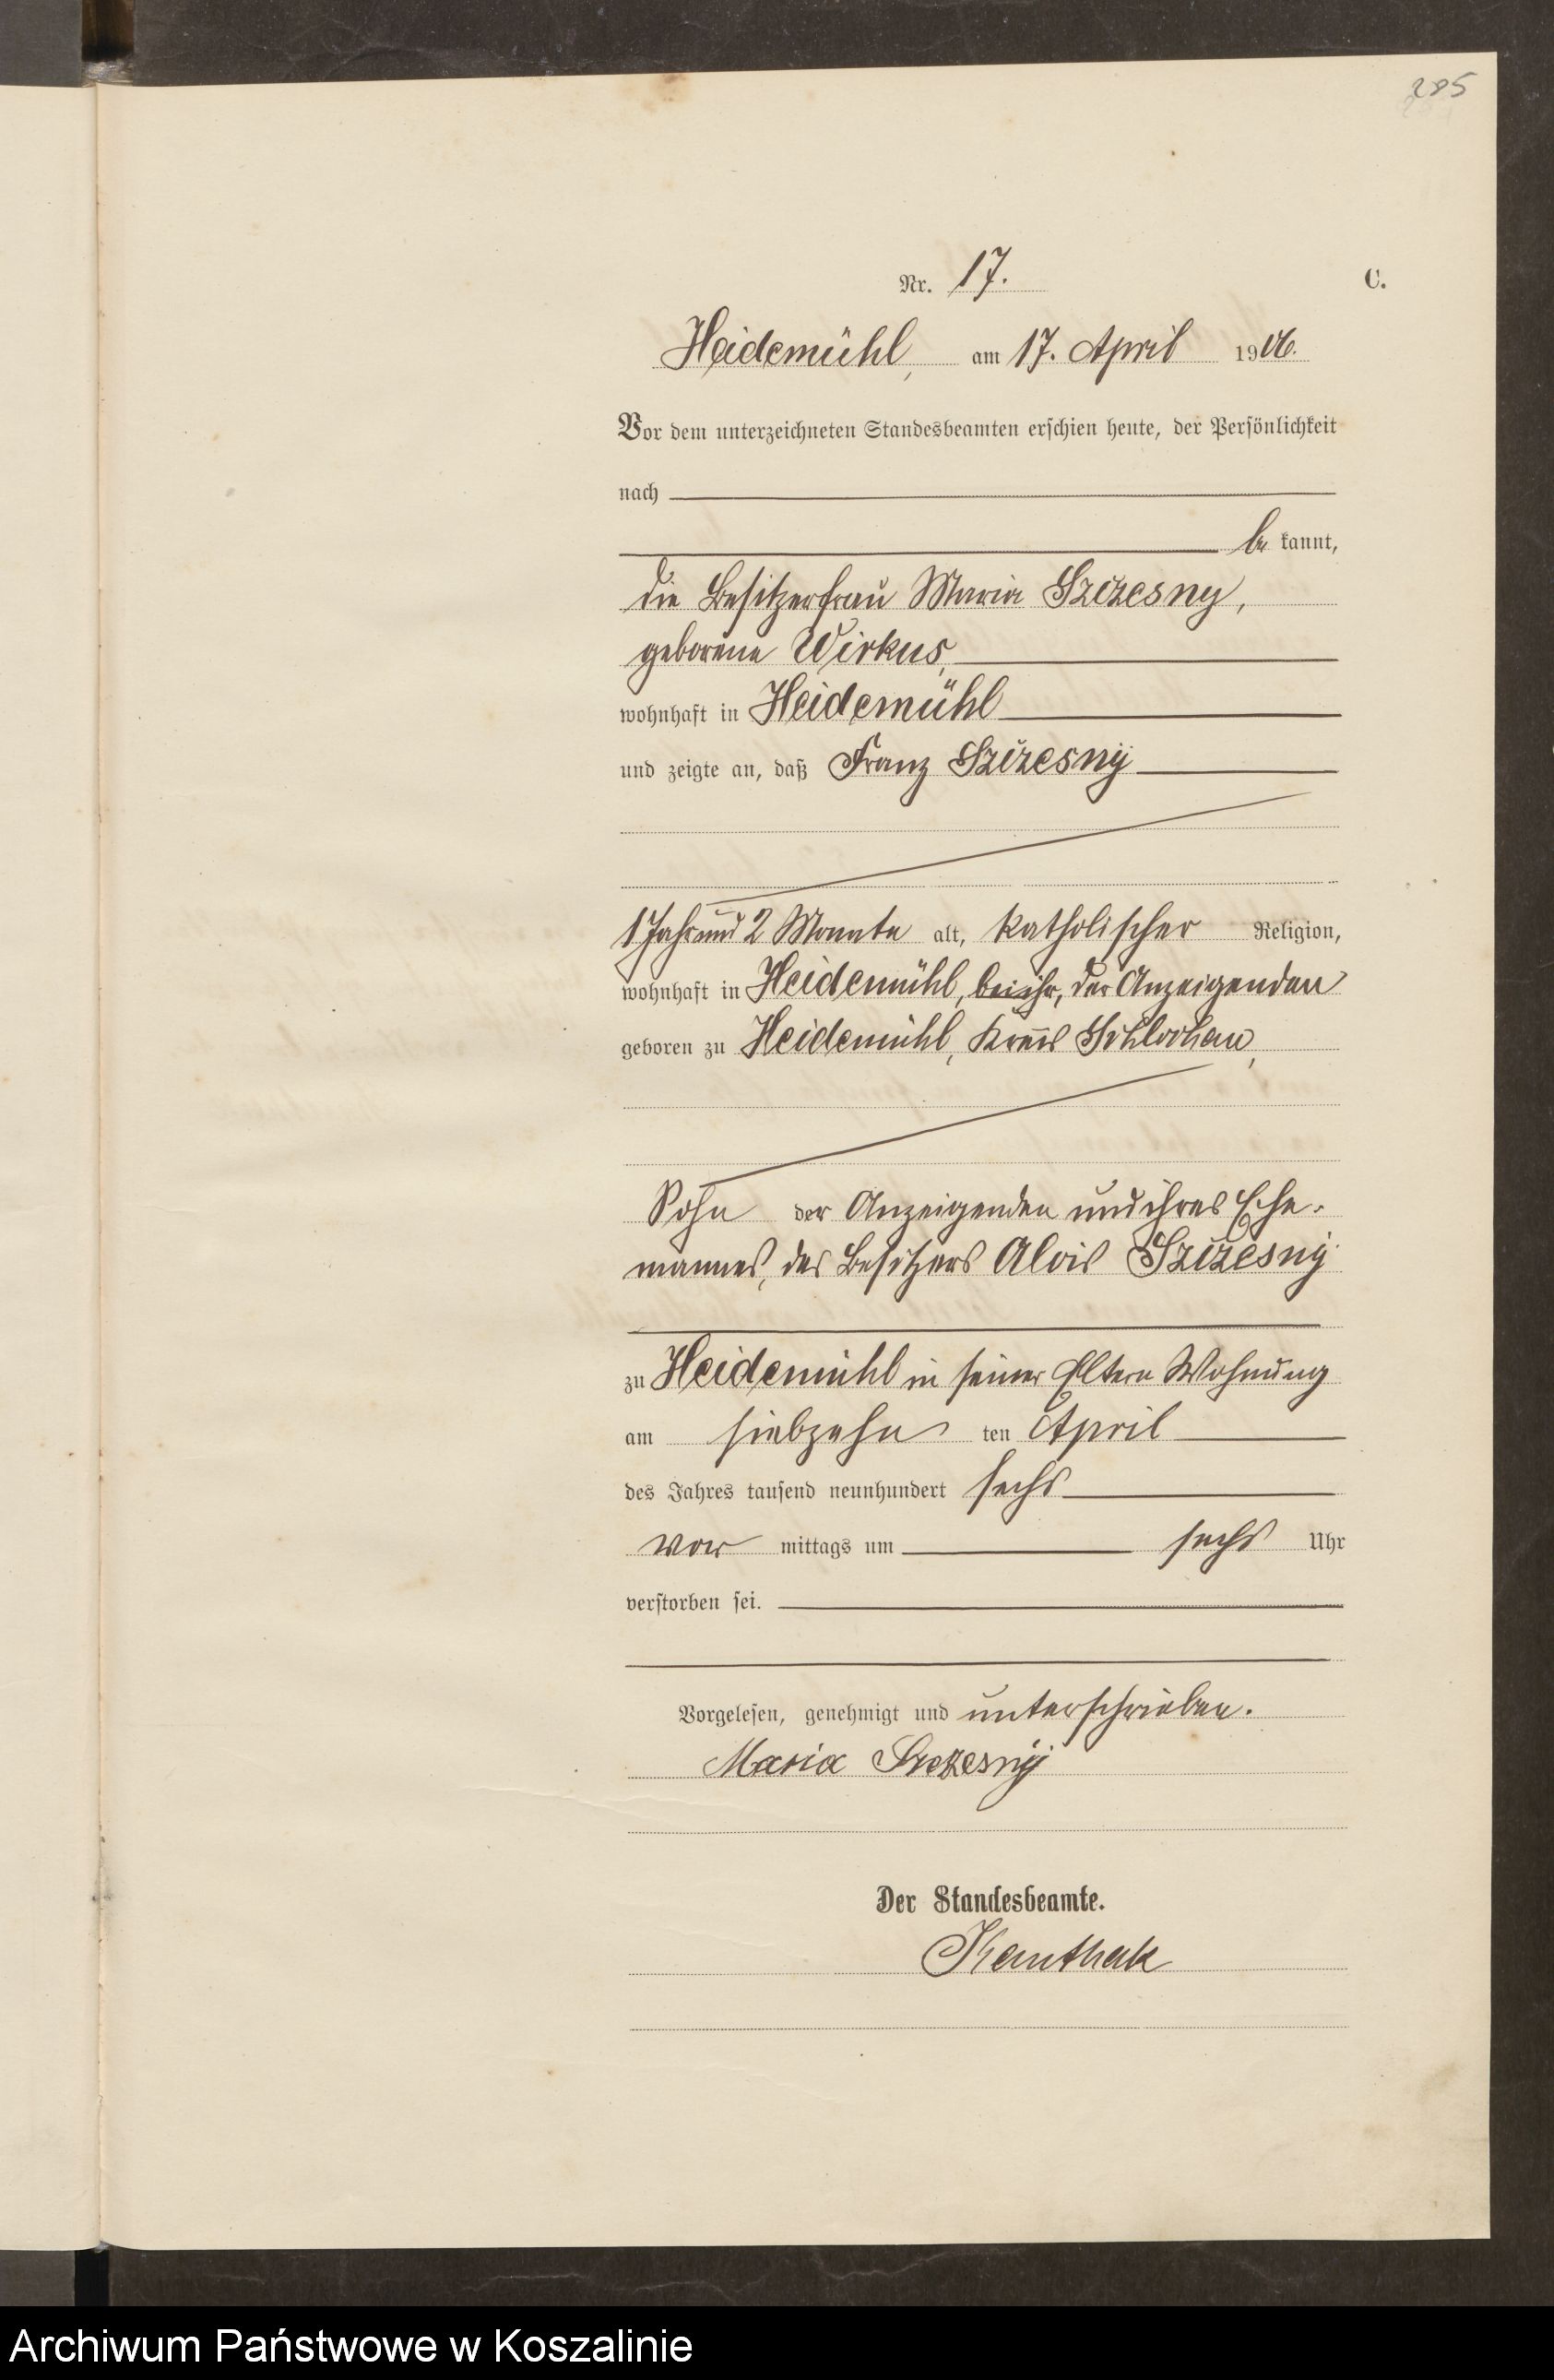 285
Nr. 17.
C.
Heidemühl, am 17. April 1906.
Vor dem unterzeichneten Standesbeamten erschien heute, der Persönlichkeit
nach
be kannt,
die Besitzerfrau Maria Szczesny,
geborene Wirkus,
wohnhaft in Heidemühl
und zeigte an, daß Franz Szczesny
1 Jahr und 2 Monate alt, katholischer Religion,
wohnhaft in Heidemühl, bei ihr, der Anzeigenden
geboren zu Heidemühl, Kreis Schlochau,
Sohn der Anzeigenden und ihres Ehe-
mannes, des Besitzers Alois Szczesny
zu Heidemühl in seiner Eltern Wohnung
am siebzehn ten April
des Jahres tausend neunhundert sechs
vor mittags um sechs Uhr
verstorben sei.
Vorgelesen, genehmigt und unterschrieben.
Maria Szczesny
Der Standesbeamte.
Kanthak
Archiwum Państwowe w Koszalinie